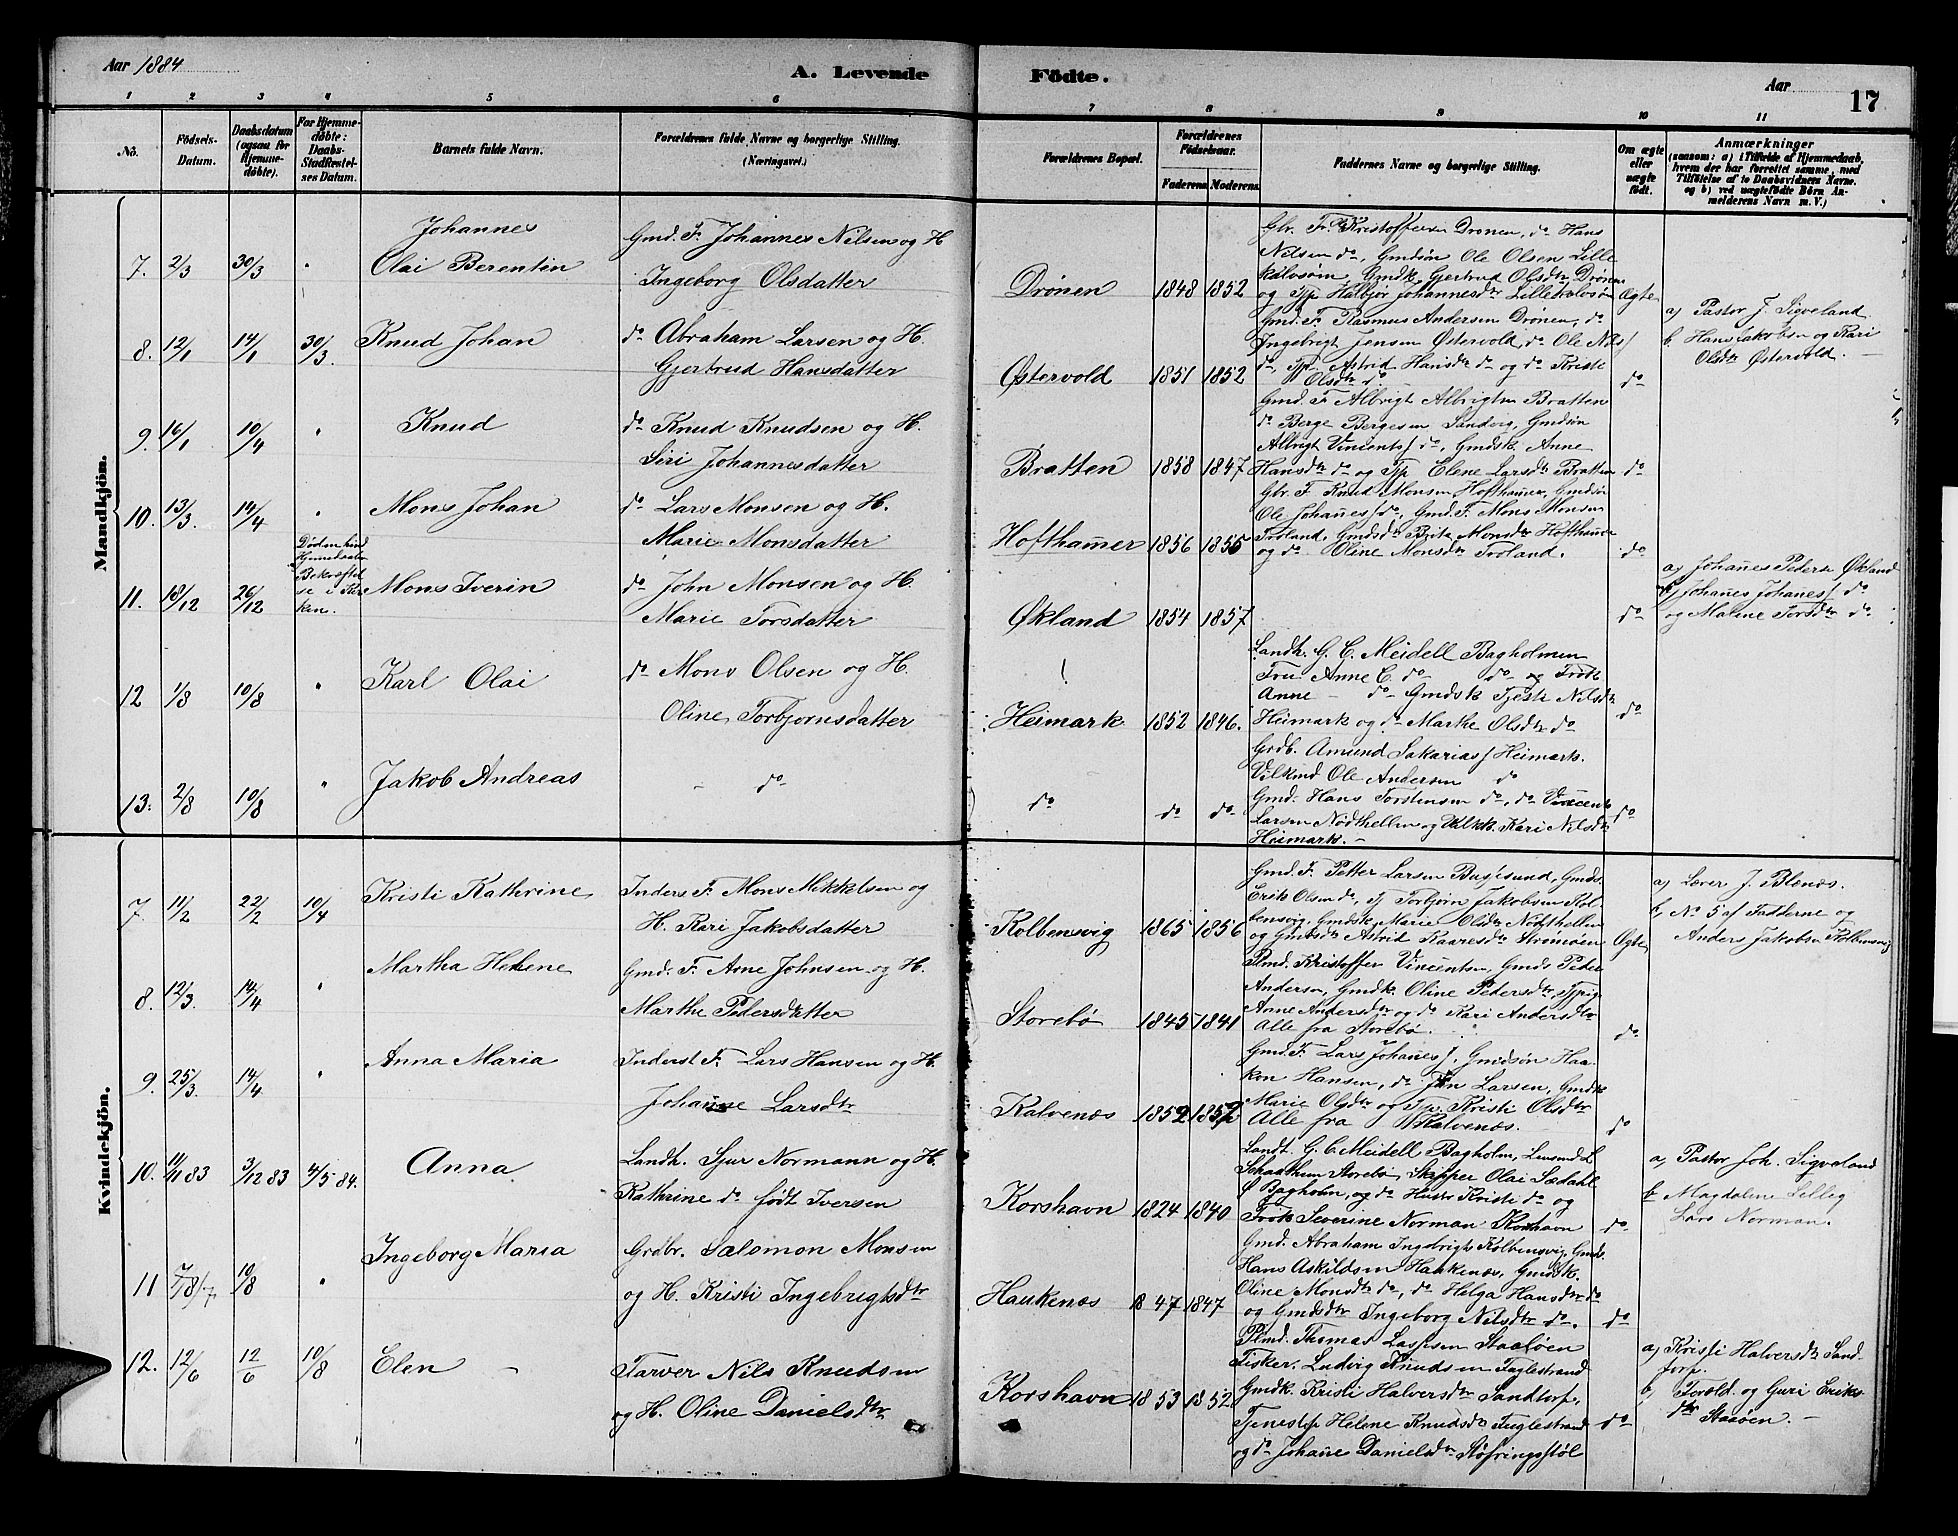 Aar 1884
A. Levende
Födte.
Aar
17
1 2 3 4 5 6 7 8 9 10 11
No.
Födsels-
Datum.
Daabsdatum
(ogsaa for
Hjemme-
döbte).
For Hjemme-
döbte:
Daabs-
Stadfæstel-
ses Datum.
Barnets fulde Navn.
Forældrenes fulde Navne og borgerlige Stilling.
(Næringsvei.)
Forældrenes Bopæl.
Forældrenes
Födselsaar.
Faderens Moderens
Faddernes Navne og borgerlige Stilling.
Om ægte
eller
uægte
født.
Anmærkninger
(saasom: a) i Tilfælde af Hjemmedaab,
hvem der har forrettet samme, med
Tilföielse af to Daabsvidners Navne,
og b) ved uægtefödte Börn An-
melderens Navn m. V.)
Mandkjön.
7. 2/3 30/3 "
Johannes
Olai Berentin
Gmd. F. Johannes Nilsen og H
Ingeborg Olsdatter
Drönen 1848 1852
Gbr. Fr. Kristoffersen Drönen, do Hans
Nilsen do, Gmdsön Ole Olsen Lille
kalvsöm, Gmdk. Gjertrud Olsdtr Drönen
og Tjp. Halbjör Johannesdtr Lillekalvsöm
Ægte
8. 12/1 14/1 30/3
Knud Johan
do Abraham Larsen og H.
Gjertrud Hansdatter
Østervold 1851 1852
Gmd. F. Rasmus Andersen Drönen, do
Ingebrigt Jensen Østervold, do Ole Nils/
do, Tjp. Astrid Hansdtr do og do Kristi
Olsdtr do
do
a) Pastor J. Sigveland
b. Hans Jakobsen og Kari
Olsdtr Østervold. —
9. 16/1 10/4 "
Knud
do Knud Knudsen og H.
Siri Johannesdatter
Bratten 1858 1847
Gmd. F Albrigt Albrigtsen Bratten
do Berge Bergesen Sandvig, Gmdsön
Albrigt Vincents/ do, Gmdsk Anne
Hansdtr do og Tjp Elene Larsdtr Bratten
do
10. 13/3. 14/4 "
Mons Johan
do Lars Monsen og H.
Marie Monsdatter
Hofthamer 1856 1855
Gbr. F. Knud Monsen Hofthamer, Gmdsön
Ole Johanes/ do, Gmd. F. Mons Monsen
Troland, Gmdsdtr Brita Monsdtr Hofthamer
og do Oline Monsdtr Troland.
do
11. 18/12 26/12
Död en kind
Hjemdaaben
Bekræftel
se i Kir
ken.
Mons Iverin
do John Monsen og H.
Marie Torsdatter
Økland 1854 1857
do
a) Johanes Peders Økland
b) Johanes Johanes/ do
og Malene Torsdtr do
12 1/8 10/8 "
Karl Olai
do Mons Olsen og H.
Oline Torbjornsdatter
Heimark 1852 1846.
Landh. G. C. Meidell Bagholmen
Fru Anne C. do do og Frök
Anne — do Gmdsk Tjeste Nilsdtr
Heimark og do Marthe Olsdtr do
do
13. 2/8 10/8 "
Jakob Andreas
— do
do do do
Grdb. Amund Sakarias/ Heimark.
Vilkind Ole Andersen do
Gmd. Hans Torstensen do, do Vincent
Larsen Nödthellen og Vilkk. Kari Nilsdtr
Heimark. —
do
Kvindekjön.
7 11/2 22/2 10/4
Kristi Kathrine
Inders F. Mons Mikkelsen og
H. Kari Jakobsdatter
Kolbensvig 1865 1856
Gmd. F. Petter Larsen Busesund, Gmds.
Erik Olsen do, Tj Torbjörn Jakobsen Kol-
bensvig, Gmdsk. Marie Olsdtr Nödthellen
og Gmdsdtr Astrid Kaaresdtr Strömöen
Ægte
a) Lærer J. Blænæs.
b, No 5 af Fadderne og
Anders Jakobsen Kolbensvig
8. 12/3. 14/4 "
Martha Helene
Gmd. F. Arne Johnsen og H.
Marthe Pedersdatter
Storebö 1845 1841
Plmd. Kristoffer Vincentsen, Gmds Peder
Andersen, Gmdk. Oline Pedersdtr, Tjpig
Anne Andersdtr og do Kari Andersdtr
Alle fra Storebö.
do
9. 25/3. 14/4 "
Anna Maria
Inderst F. Lars Hansen og H.
Johanne Larsdtr
Kalvenæs 1852 1857
Gmd. F. Lars Johanes/, Gmdsön Haa-
kon Hansen, do Jon Larsen, Gmdk
Marie Olsdtr og Tjp. Kristi Olsdtr
Alle fra Kalvenæs.
do
10. 11/11 83 3/12 83 4/5 84.
Anna
Landh. Sjur Normann og H.
Kathrine do födt Iversen
Korshavn 1824 1840
Landt. G. C Meidell Bagholm, Lensmd L
Schaathun Storebö, Skipper Olai Sædahl
Bagholm, og do Hustr Kristi do og
Frök Severine Norman Korshavn
do
a, Pastor Joh. Sigveland
b Magdalene Lellig
Lars Norman.
11 7/7 8/7 10/8 "
Ingeborg Maria
Grdbr. Salomon Monsen
og H. Kristi Ingebrigtsdtr
Haukenæs 1847 1847
Gmd. Abraham Ingebrigts Kolbensvig, Gmds.
Hans Askildsen Haukenæs, Gmdsk.
Oline Monsdtr do, do Helga Hansdtr do
og Gmdsdtr Ingeborg Nilsdtr do.
do
12. 12/6 12/6 10/8
Elen —
Farver Nils Knudsen
og H. Oline Danielsdtr
Korshavn 1853 1852
Plmd. Thomas Lassen Staalöen
Fisker. Ludvig Knudsen Fuglestrand
Gmdk. Kristi Halversdtr Sandtorp,
Tjenestp Helene Knudsdtr Fuglestrand
og do Johane Danielsdtr Stöfringsstöl
do
a, Kristi Halversdtr Sand-
torp.
b, Torold. og Guri Eriks
dtr Staöen. —